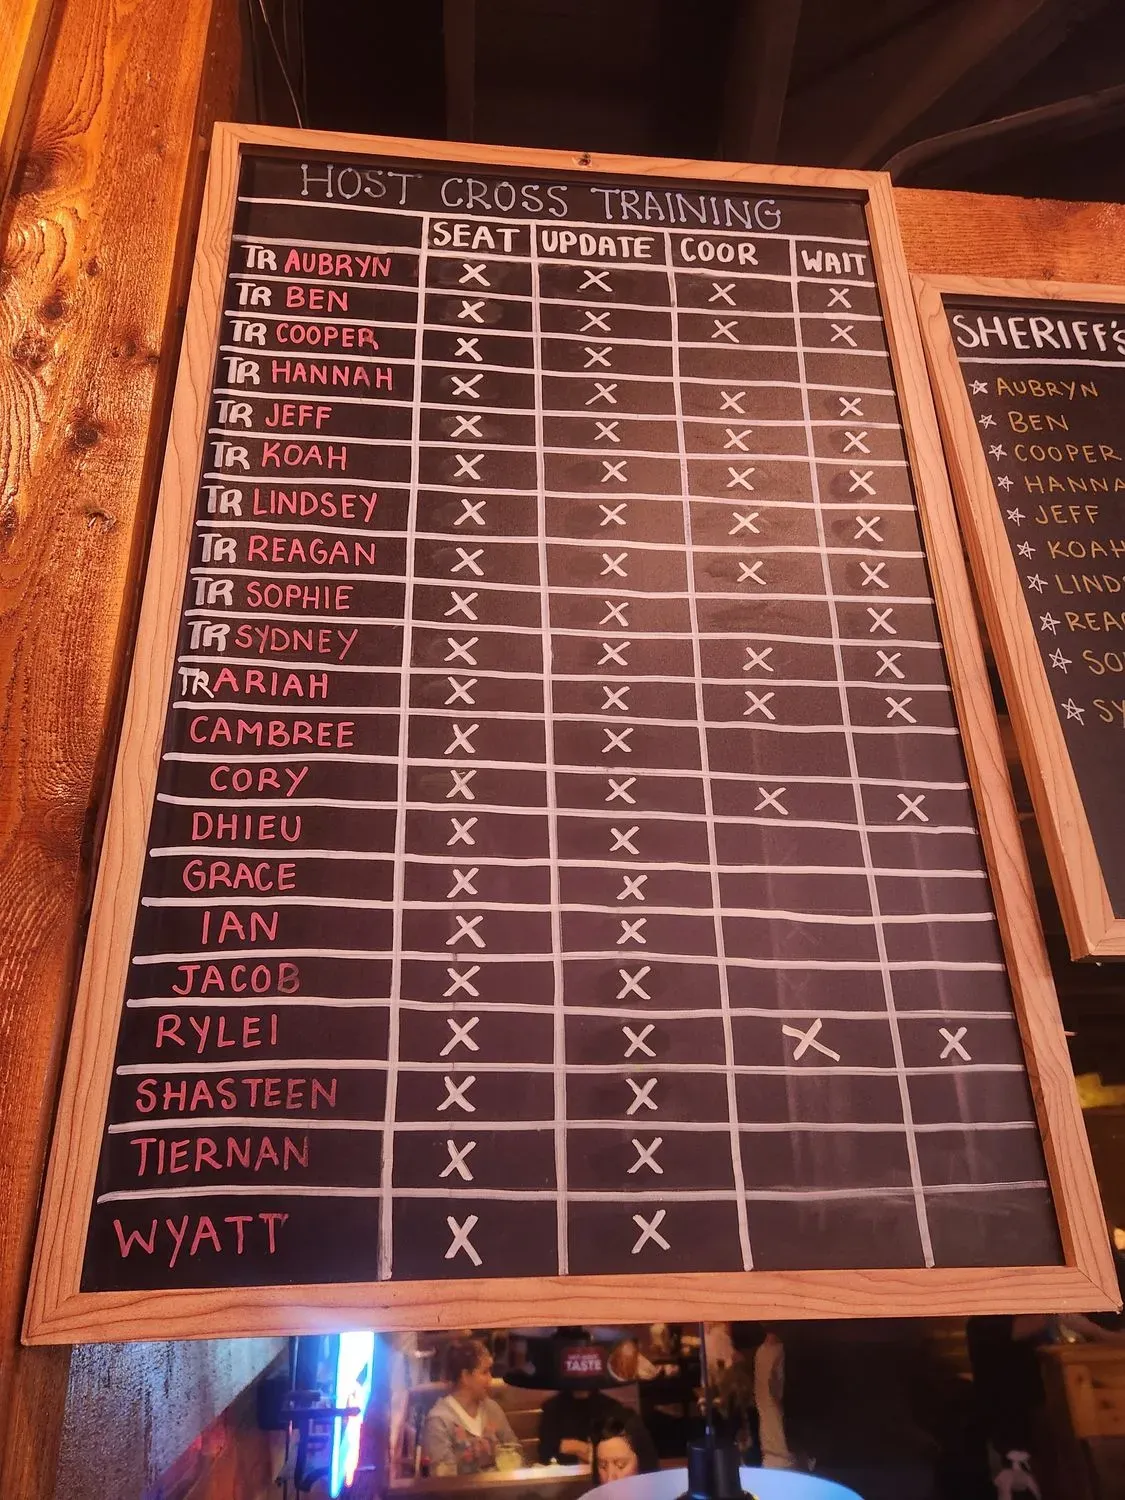 HOST CROSS TRAINING
SEAT UPDATE COOR WAIT
TR AUBRYN X X X X
TR BEN X X X X
TR COOPER X X
TR HANNAH X X X X
TR JEFF X X X X
TR KOAH X X X X
TR LINDSEY X X X X
TR REAGAN X X X X
TR SOPHIE X X X
TR SYDNEY X X X X
TR ARIAH X X X X
CAMBREE X X
CORY X X X X
DHIEU X X
GRACE X X
IAN X X
JACOB X X
RYLEI X X X X
SHASTEEN X X
TIERNAN X X
WYATT X X
SHERIFF'S
AUBRYN
BEN
COOPER
HANNA
JEFF
KOAH
LINDS
REAG
SO
SY
TASTE